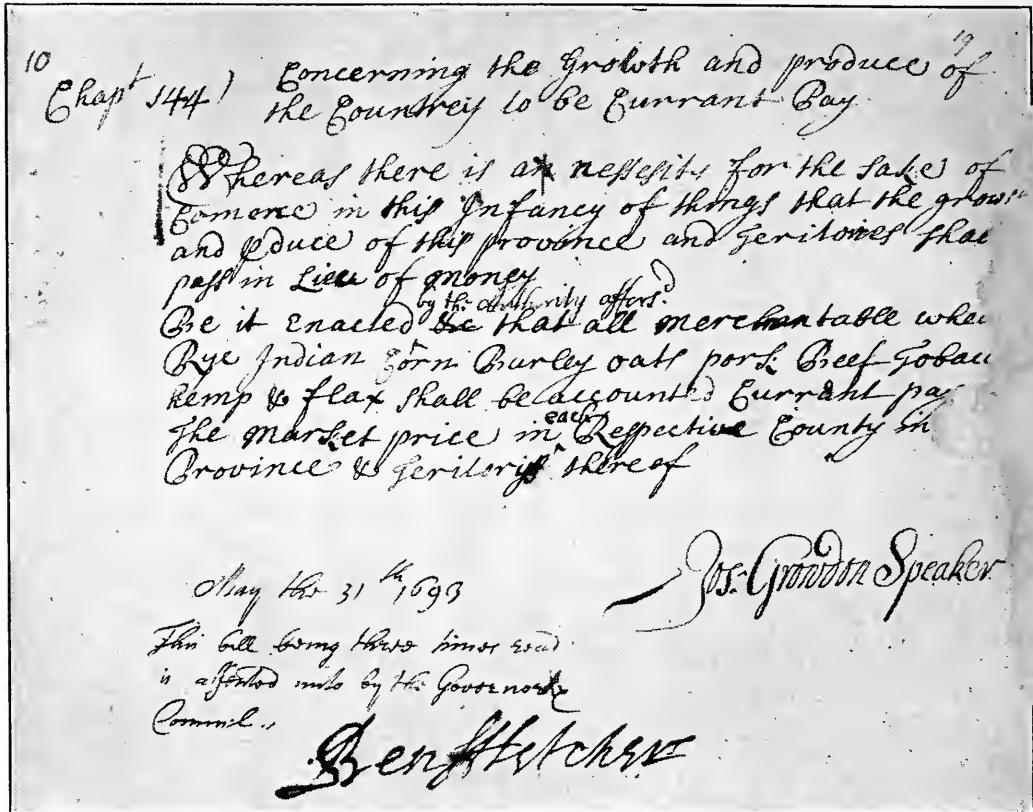 10
19
Chapt 144) Concerning the Growth and produce of
the Countrey to be Currant Pay
Whereas there is an nessesity for the sake of
Comerce in this Infancy of things that the grow
and pduce of this province and Teritories shal
pass in Lieu of money
by the Authority affors:d
Be it Enacted &c that all merchantable whea
Rye Indian Corn Burley oats pork Beef Tobacc
hemp & flax shall be accounted Currant pay
The Market price in each Respective County in
Province & Teritorys thereof
Jos: Growdon Speaker
May the 31th 1693
This bill being three times read
is assented unto by the Governor &
Council
Ben Ffletcher